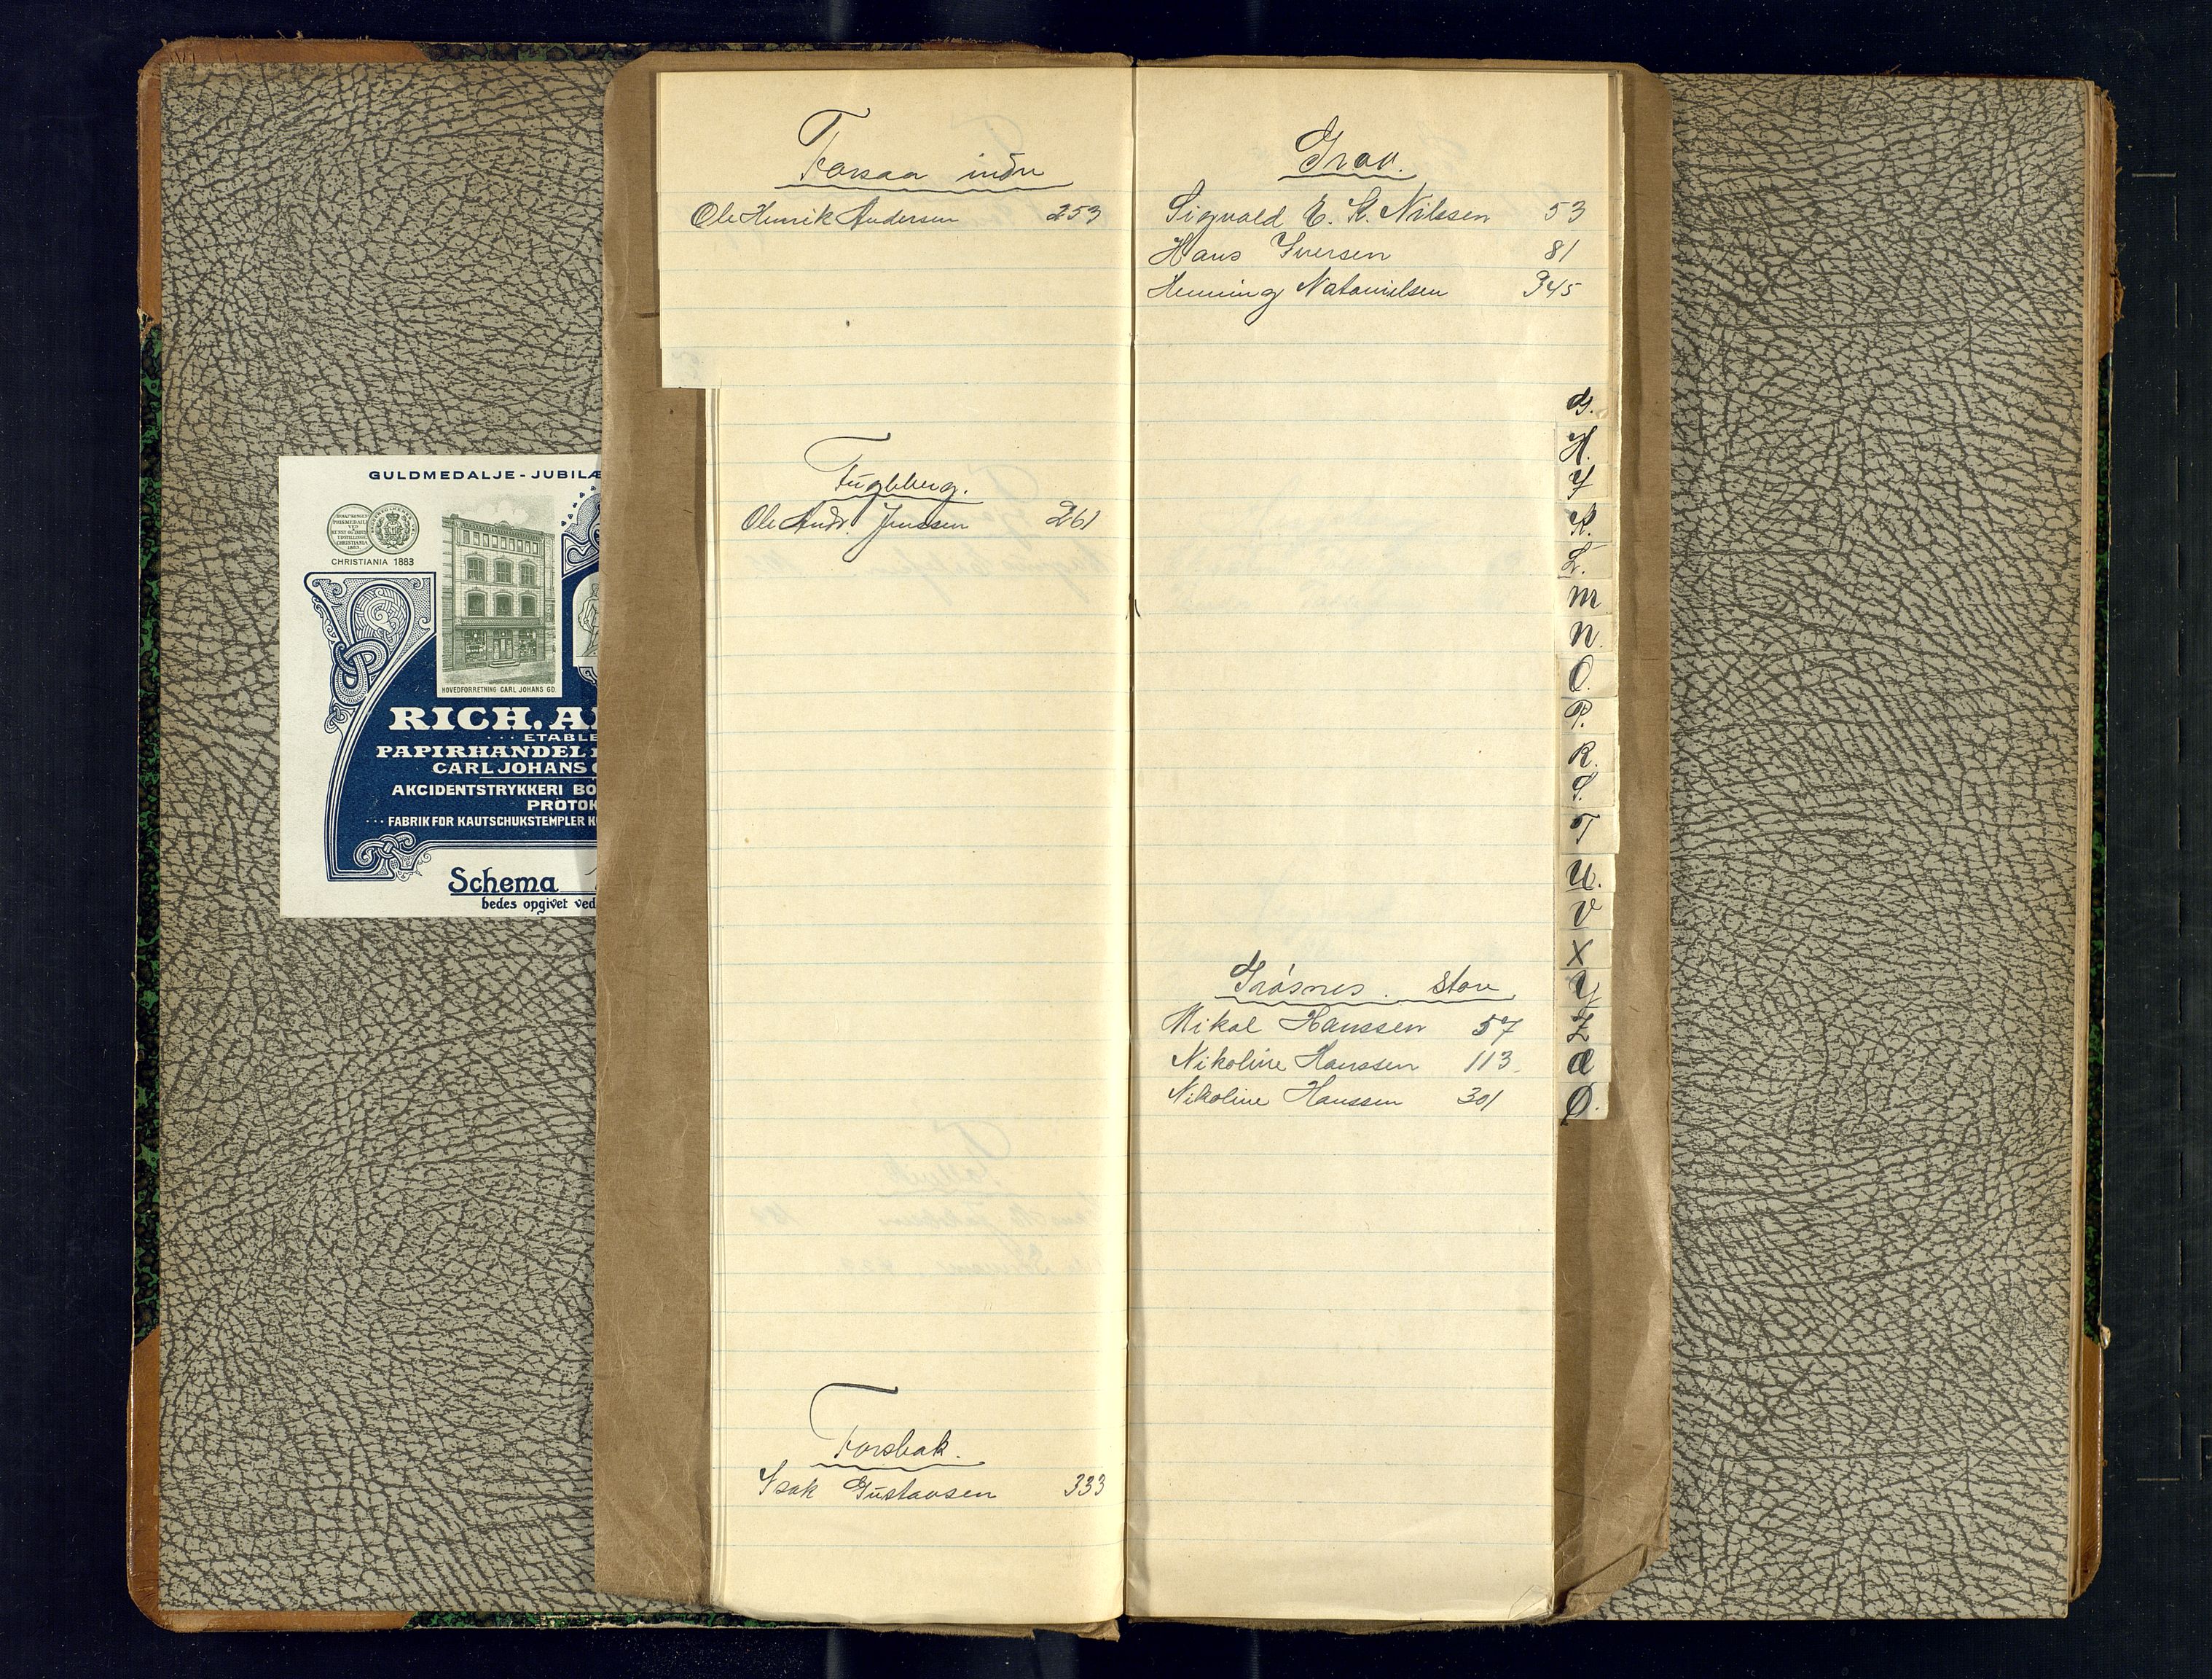 GULDMEDALJE-JUBILÆ
CHRISTIANIA 1883
HOVEDFORRETNING CARL JOHANS GD.
RICH. A
ETABLE
PAPIRHANDEL
CARL JOHANS
AKCIDENTSTRYKKERI BO
PROTOK
FABRIK FOR KAUTSCHUKSTEMPLER K
Schema
bedes opgivet ved
Forsaa indre
Ole Henrik Andersen 253
Fugleberg.
Ole Andr. Jenssen 261
Forsbak.
Isak Gustavsen 333
Grov.
Sigvald E. K. Nilssen 53
Hans Iversen 81
Henning Natanielsen 345
Grøsnes store
Nikal Hanssen 57
Nikoline Hanssen 113
Nikoline Hanssen 301
G.
H.
Y
K.
L.
M
N.
O.
P.
R.
S.
T
U.
V
X
Y
Z
Æ
Ø.